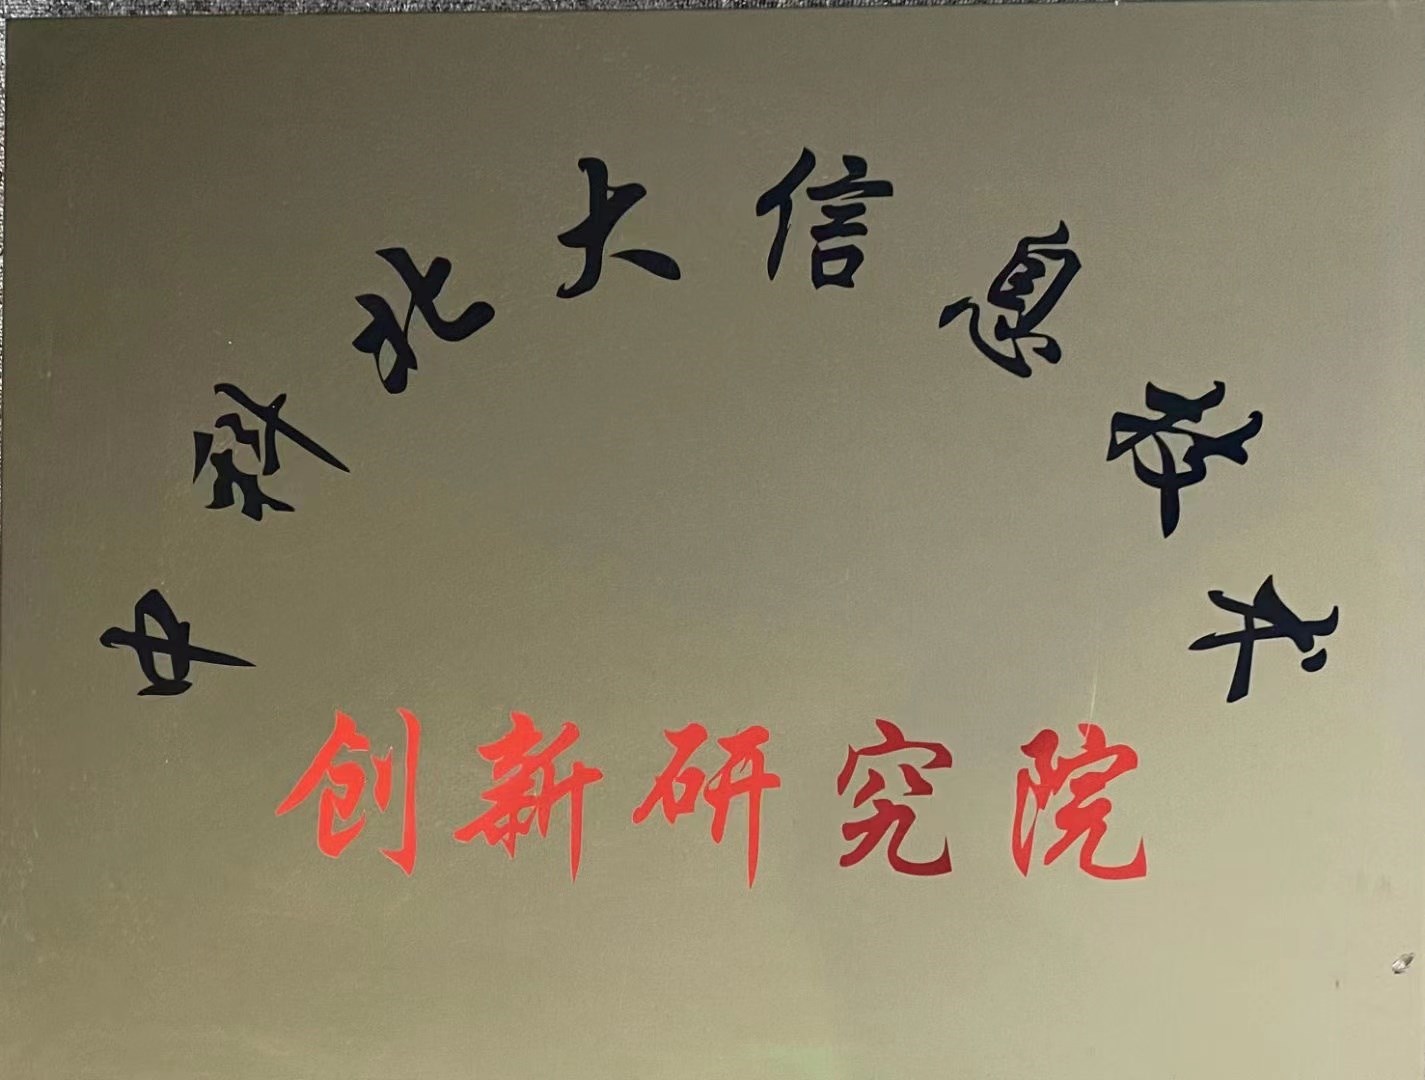 中科北大信息技术
创新研究院